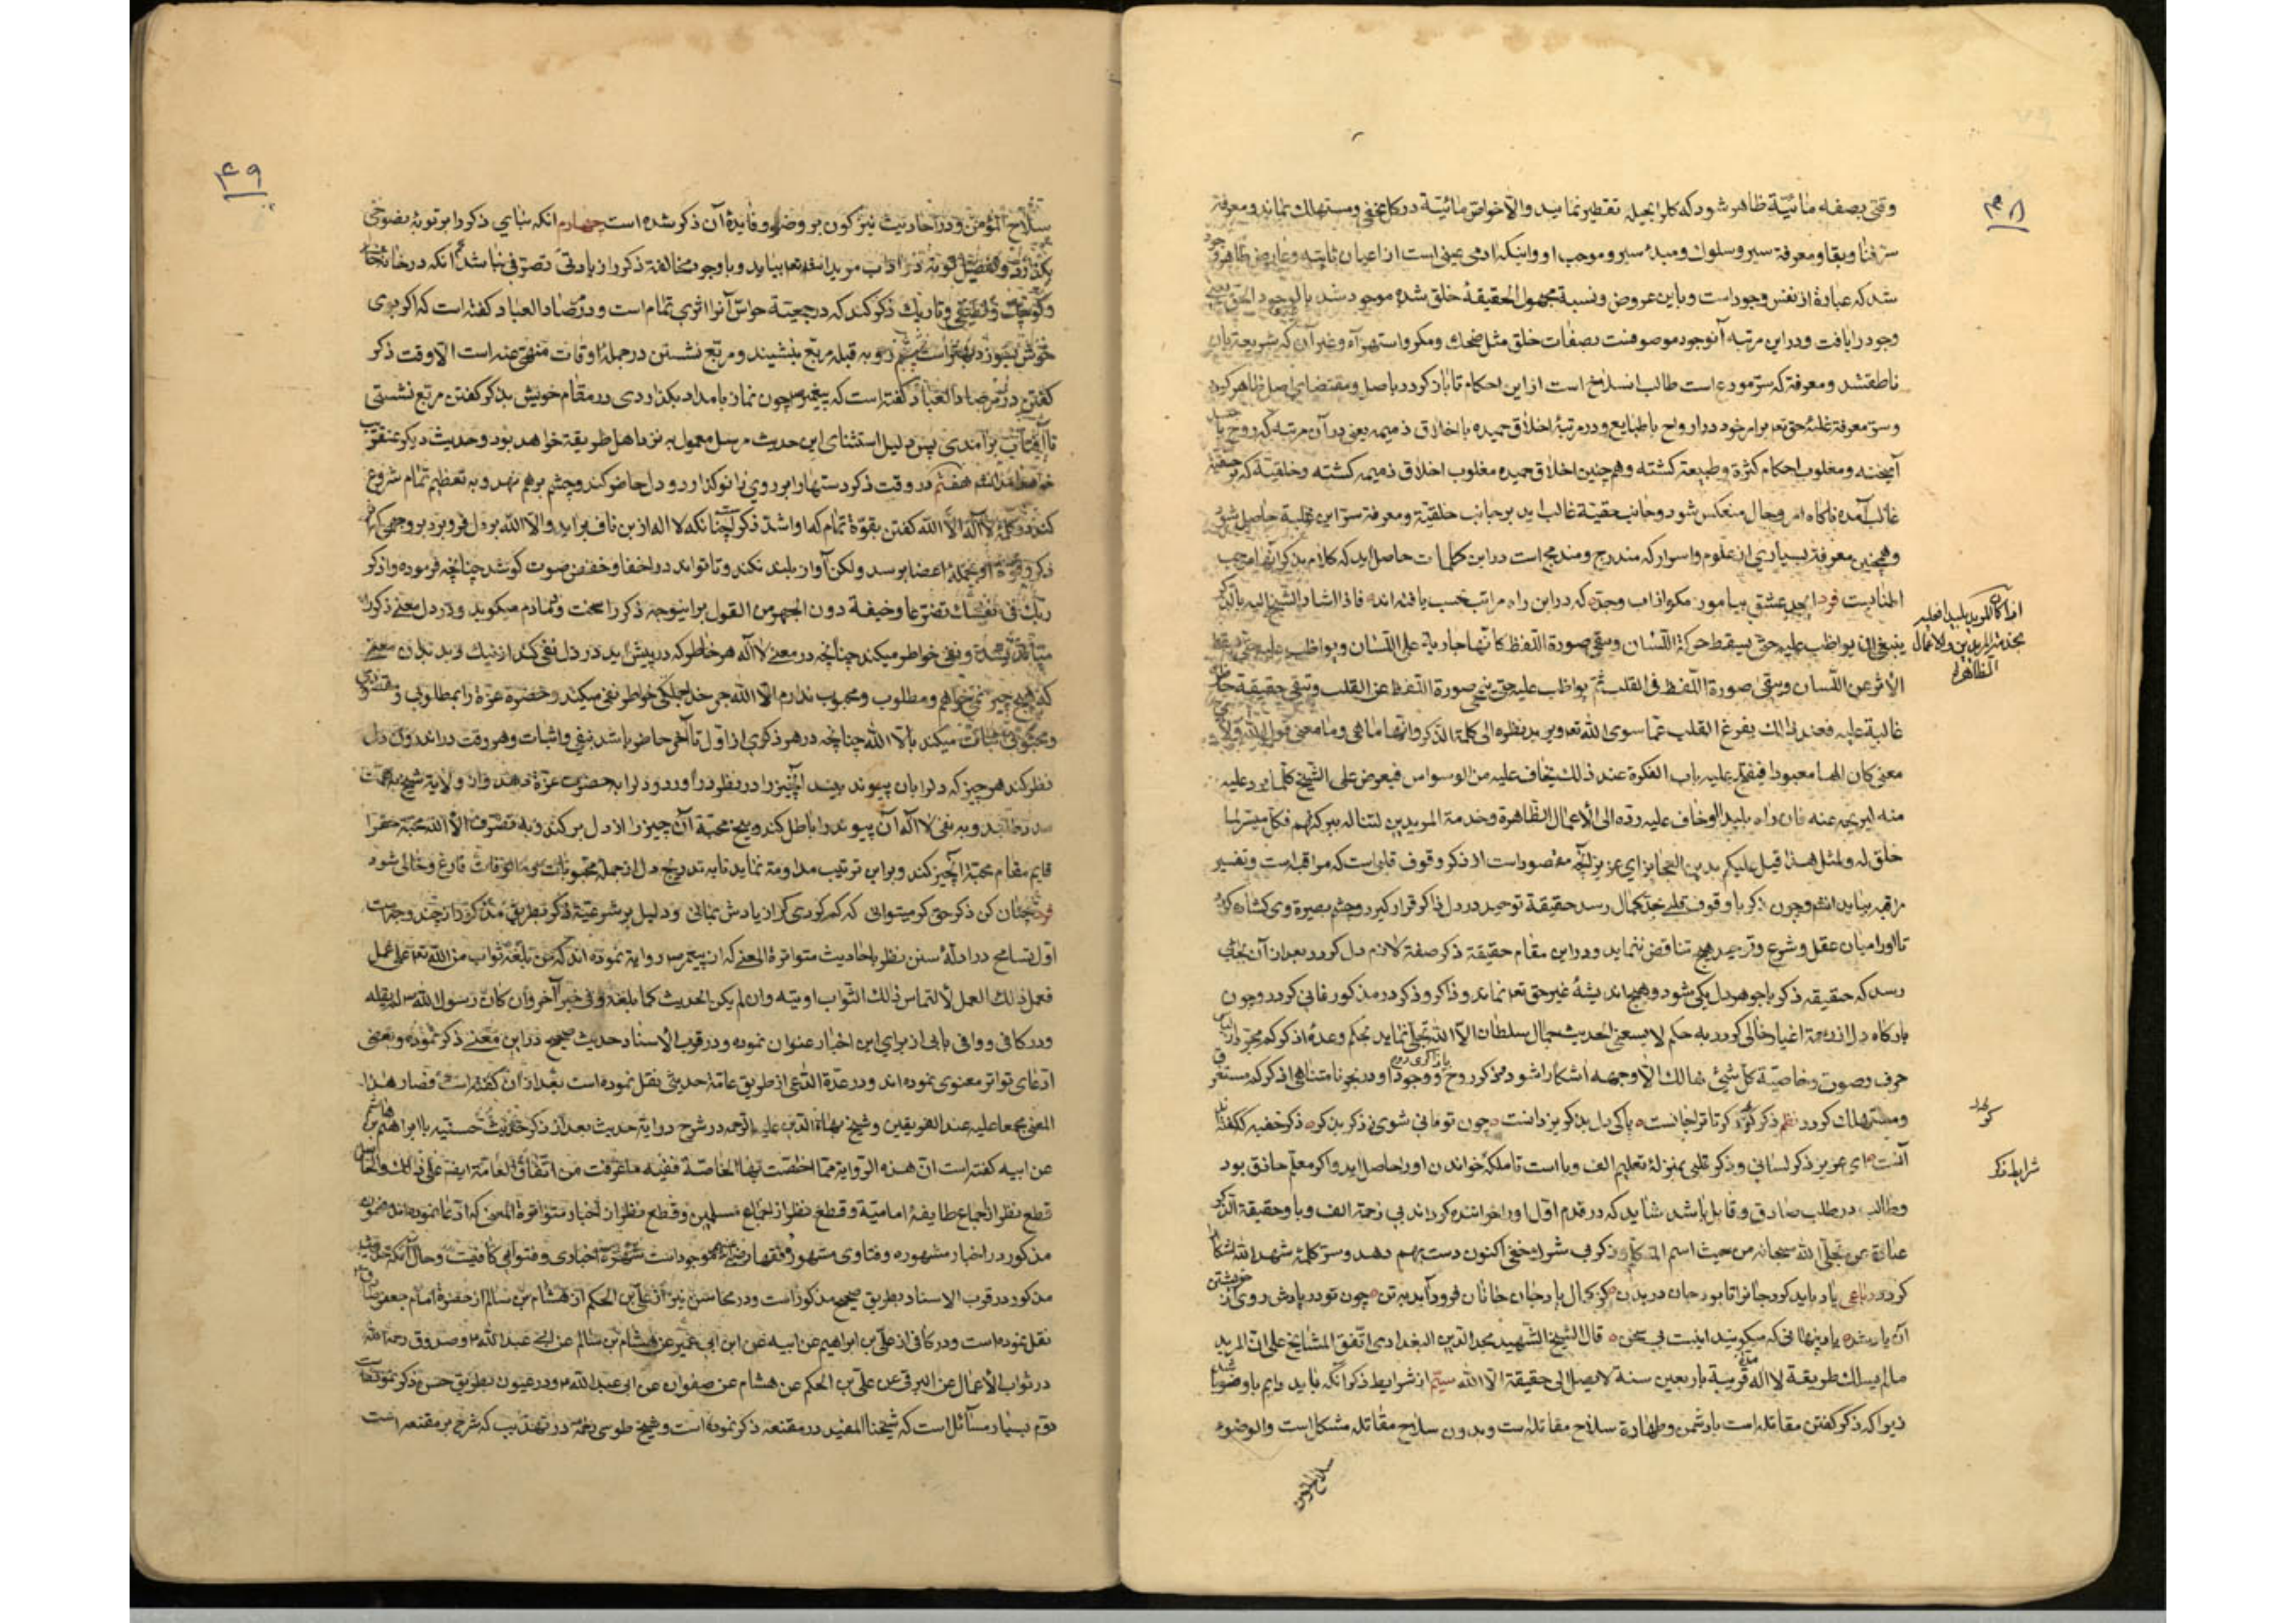 ۴۸
وقتی بصفه مائیّة ظاهر شود که کلرا بحیله تقطیر نماید والّا خواص مائیّة در کل مخفی ومستهلک نماند ومعرفة
سرّ فنا وبقا ومعرفة سیر وسلوک ومبدء سیر وموجب او واینکه ادمی عینی است از اعیان ثابته وعارض ظاهر وجود
شد که عبارة از نفس وجود است وباین عروض ونسبة مجهول الحقیقة خلق شده موجود شد بالوجود الحق یعنی
وجود را یافت ودر این مرتبه آنوجود موصوفست بصفات خلق مثل ضحک ومکر واستهزآء وغیر آن که شریعة بان
ناطقشد ومعرفة که سرّ مودع است طالب انسلاخ است از این احکام تا باز کردد باصل ومقتضای اصل ظاهر کردد
وسرّ معرفة غلبهٔ حق تعه برامر خود در ارواح با طبایع ودر مرتبهٔ اخلاق حمیده با اخلاق ذمیمه یعنی در آن مرتبه که روح با
آمیخته ومغلوب احکام کثرة وطبیعة کشته وهمچنین اخلاق حمیده مغلوب اخلاق ذمیمه کشته وخلقیّة که بر حقیّة
غالب آمده ناکاه امر وحال منعکس شود وجانب حقیّة غالب اید بر جانب خلقیّة ومعرفة سرّ این غلبة حاصل شود
وهمچنین معرفة بسیاری از علوم واسرار که مندرج ومندمج است در این کلمات حاصل اید که کلام بذکر آنها موجب
اطنابست فرد ابجد عشق بیاموز مکو از اب وجد که در این راه مراتب حسب یافته اند فاذا اشار الشیخ الیه بالذکر
ینبغی ان یواظب علیه حتی یسقط حرکة اللّسان ویبقی صورة اللّفظ کانّها جاریة علی اللّسان ویواظب علیه حتی یسقط
الأثر عن اللّسان ویبقی صورة اللّفظ فی القلب ثمّ یواظب علیه حتی ینمحی صورة اللّفظ عن القلب وتبقی حقیقة حاضرة
غالبة علیه فعند ذلک یفرغ القلب عمّا سوی اللّه تعه ویرید نظره الی کلمة الذکر وانّها ما هی وما معنی قول اللّه ولأیّ
معنی کان الها معبودا فیفتح علیه باب الفکرة عند ذلک یخاف علیه من الوسواس فیعرض علی الشّیخ کلّما یرد علیه
منه لیریحه عنه فان راه بلیدا او خاف علیه ردّه الی الأعمال الظّاهرة وخدمة المریدین لتناله ببرکتهم فکلّ میسّر لما
خلق له ولمثل هذا قیل علیکم بدین العجایز ای عزیز آنچه مقصود است از ذکر وقوف قلبی است که مراقبه است وتفسیر
مراقبه بیاید انشه وچون ذکر با وقوف قلبی بحدّ کمال رسد حقیقة توحید در دل ذاکر قرار کیرد وچشم بصیرة وی کشاده کردد
تا اورا میان عقل وشرع وتوحید هیچ تناقض ننماید ودر این مقام حقیقة ذکر صفة لازم دل کردد بعد از آن بجایی
رسد که حقیقة ذکر با جوهر دل یکی شود وهیچ اندیشهٔ غیر حق تعه نماند وذاکر وذکر در مذکور فانی کردد وچون
بارکاه دل از زحمة اغیار خالی کردد به حکم لا یسعنی الحدیث جمال سلطان الّا اللّه تجلّی نماید بحکم وعدهٔ اذکرکم مجرّد از لباس
حرف وصورت وخاصیّة کلّ شیئ هالک الّا وجهه اشکارا شود مذکر روح با ذاکری روح ووجود او در بحر نامتناهی اذکرکم مستغرق
ومستهلک کردد نظم ذکر کو ذکر تا ترا جانست پاکی دل بذکر یزدانست چون تو فانی شوی ز ذکر بذکر ذکر خفیه که گفته‌اند
آنست ای عزیز ذکر لسانی وذکر قلبی بمنزلهٔ تعلیم الف وبا است تا ملکهٔ خواندن اورا حاصل اید واکر معلّم حاذق بود
وطالب در طلب صادق وقابل باشد شاید که در قدم اوّل اورا خواننده کرداند بی زحمة الف وبا وحقیقة الذکر
عبارة عن تجلّی اللّه سبحانه من حیث اسم المتکلّم ذکر بی شرک خفی اکنون دست بهم دهد وسرّ کلمهٔ شهد اللّه اشکارا
کردد رباعی یاد باید کرد جانرا تا بود جان در بدن کز کمال یاد جان جانان فرود آید به تن چون تو در یادش روی از خویشتن
آن یار شد یاد پنهانی که میکویند اینست بی سخن قال الشّیخ الشّهید مجد الدّین البغدادی اتّفق المشایخ علی انّ المرید
ما لم یسلک طریقة لا اله قریبة باربعین سنة لا یصل الی حقیقة الّا اللّه سیّم از شرایط ذکر آنکه باید دایم با وضو باشد
زیرا که ذکر کفتن مقاتله است با دشمن وطهارة سلاح مقاتله است وبدون سلاح مقاتله مشکل است والوضوء
سلاح المؤمن
شرایط ذکر
۴۹
سلاح المؤمن ودر احادیث نیز کون بر وضو وفایدهٔ آن ذکر شده است چهارم آنکه بنای ذکر را بر توبهٔ نصوحی
بکذارد وتفصیل توبة در اداب مرید انشاء اللّه تعه بیاید وبا وجود مخالفة ذکر را زیادتی تصرّفی نباشد پنجم آنکه در خانهٔ خالی
وکوچک ولطیف وتاریک ذکر کند که در جمعیّة حواس آنرا اثری تمام است ودر مرصاد العباد کفته است که اکر بوی
خوش بسوزد بهتر است ششم رو به قبله مربّع بنشیند ومربّع نشستن در جملهٔ اوقات منهیّ عنه است الّا وقت ذکر
کفتن در مرصاد العباد کفته است که پیغمبر ص چون نماز بامداد بکذاردی در مقام خویش بذکر کفتن مربّع نشستی
تا آفتاب برآمدی پس دلیل استثنای این حدیث مرسل معمول به نزد اهل طریقة خواهد بود وحدیث دیکر عنقریب
خواهد آمد انشه هفتم در وقت ذکر دستها را بر روی زانو کذارد ودل حاضر کند وچشم برهم نهد وبه تعظیم تمام شروع
کند در کلمهٔ لا اله الّا اللّه کفتن بقوّة تمام که او اشدّ ذکرا چنانکه لا اله از بن ناف براید والّا اللّه بر دل فرو برد بر وجهی که اثر
ذکر وقوّة او بجملهٔ اعضا برسد ولکن آواز بلند نکند وتا تواند در اخفا وخفض صوت کوشد چنانچه فرموده واذکر
ربّک فی نفسک تضرّعا وخیفة ودون الجهر من القول برای نوجه ذکر را سخت ودمادم میکوید ودر دل معنی ذکر را
می‌اندیشد ونفی خواطر میکند چنانچه در معنی لا اله هر خاطر که در پیش اید در دل نفی کند از نیک وبد بدان معنی
که هیچ چیز نمی‌خواهم ومطلوب ومحبوب ندارم الّا اللّه جز خدا جملکی خواطر نفی میکند وحضرة عزّة را بمطلوبی ومقصودی
ومحبوبی اثبات میکند بالّا اللّه چنانچه در هر ذکری از اوّل تا آخر حاضر باشد بنفی واثبات وهر وقت در اندرون دل
نظر کند هر چیز که دلرا بان پیوند بیند آنچیز را در نظر درآورد ودلرا به حضرت عزّة دهد واز ولایة شیخ به همّت
مدد طلبد وبه نفی لا اله آن پیوند را باطل کند وبیخ محبّة آن چیز را از دل برکند وبه تصرّف الّا اللّه محبّة حق را
قایم مقام محبّة آنچیز کند وبر این ترتیب مداومة نماید تا به تدریج دل از جملهٔ محبوبات ومألوفات فارغ وخالی شود
فرد چنان کن ذکر حق کر میتوانی که کم کردی کر از یادش بمانی ودلیل بر شرعیّة ذکر بطریق مذکور از چند وجه است
اوّل تسامح در ادلّهٔ سنن نظر باحادیث متواترة المعنی که از پیغمبر ص روایة نموده اند که من بلغه ثواب من اللّه تعه علی عمل
فعمل ذلک العمل لالتماس ذلک الثّواب اوتیه وان لم یکن الحدیث کما بلغه وفی خبر آخر وان کان رسول اللّه ص لم یقله
ودر کافی ووافی بابی از برای این اخبار عنوان نموده ودر قرب الأسناد حدیث صحیح در این معنی ذکر نموده وبعضی
ادّعای تواتر معنوی نموده اند ودر عدّة الدّاعی از طریق عامّة حدیثی نقل نموده است بعد از آن کفته است فصار هذا
المعنی مجمعا علیه عند الفریقین وشیخ بهاء الدّین علیه الرّحمه در شرح روایة حدیث بعد از ذکر حدیث حسنه با ابراهیم بن هاشم
عن ابیه کفته است انّ هذه الرّوایة ممّا اختصّت بها الخاصّة ففیه ما عرفت من اتّفاق العامّة ایضه علی ذلک والحاصل
قطع نظر از اجماع طایفهٔ امامیّة وقطع نظر از اجماع مسلمین وقطع نظر از اخبار متواترة المعنی که ادّعا نموده‌اند مضمون
مذکور در اخبار مشهوره وفتاوی مشهور فقها موجود است شهرة اخباری وفتوایی کافیست وحال آنکه حدیث
مذکور در قرب الاسناد بطریق صحیح مذکور است ودر محاسن نیز از علی بن الحکم از هشام بن سالم از حضرة امام جعفر صادق ع
نقل نموده است ودر کافی از علی بن ابراهیم عن ابیه عن ابن ابی عمیر عن هشام بن سالم عن ابی عبد اللّه ع وصدوق رحمه اللّه
در ثواب الأعمال عن البرقی عن علی بن الحکم عن هشام عن صفوان عن ابی عبد اللّه ع ودر عیون بطریق حسن ذکر نموده است
دوّم بسیار مسائل است که شیخنا المفید در مقنعه ذکر نموده است وشیخ طوسی رحمه در تهذیب که شرح بر مقنعه است